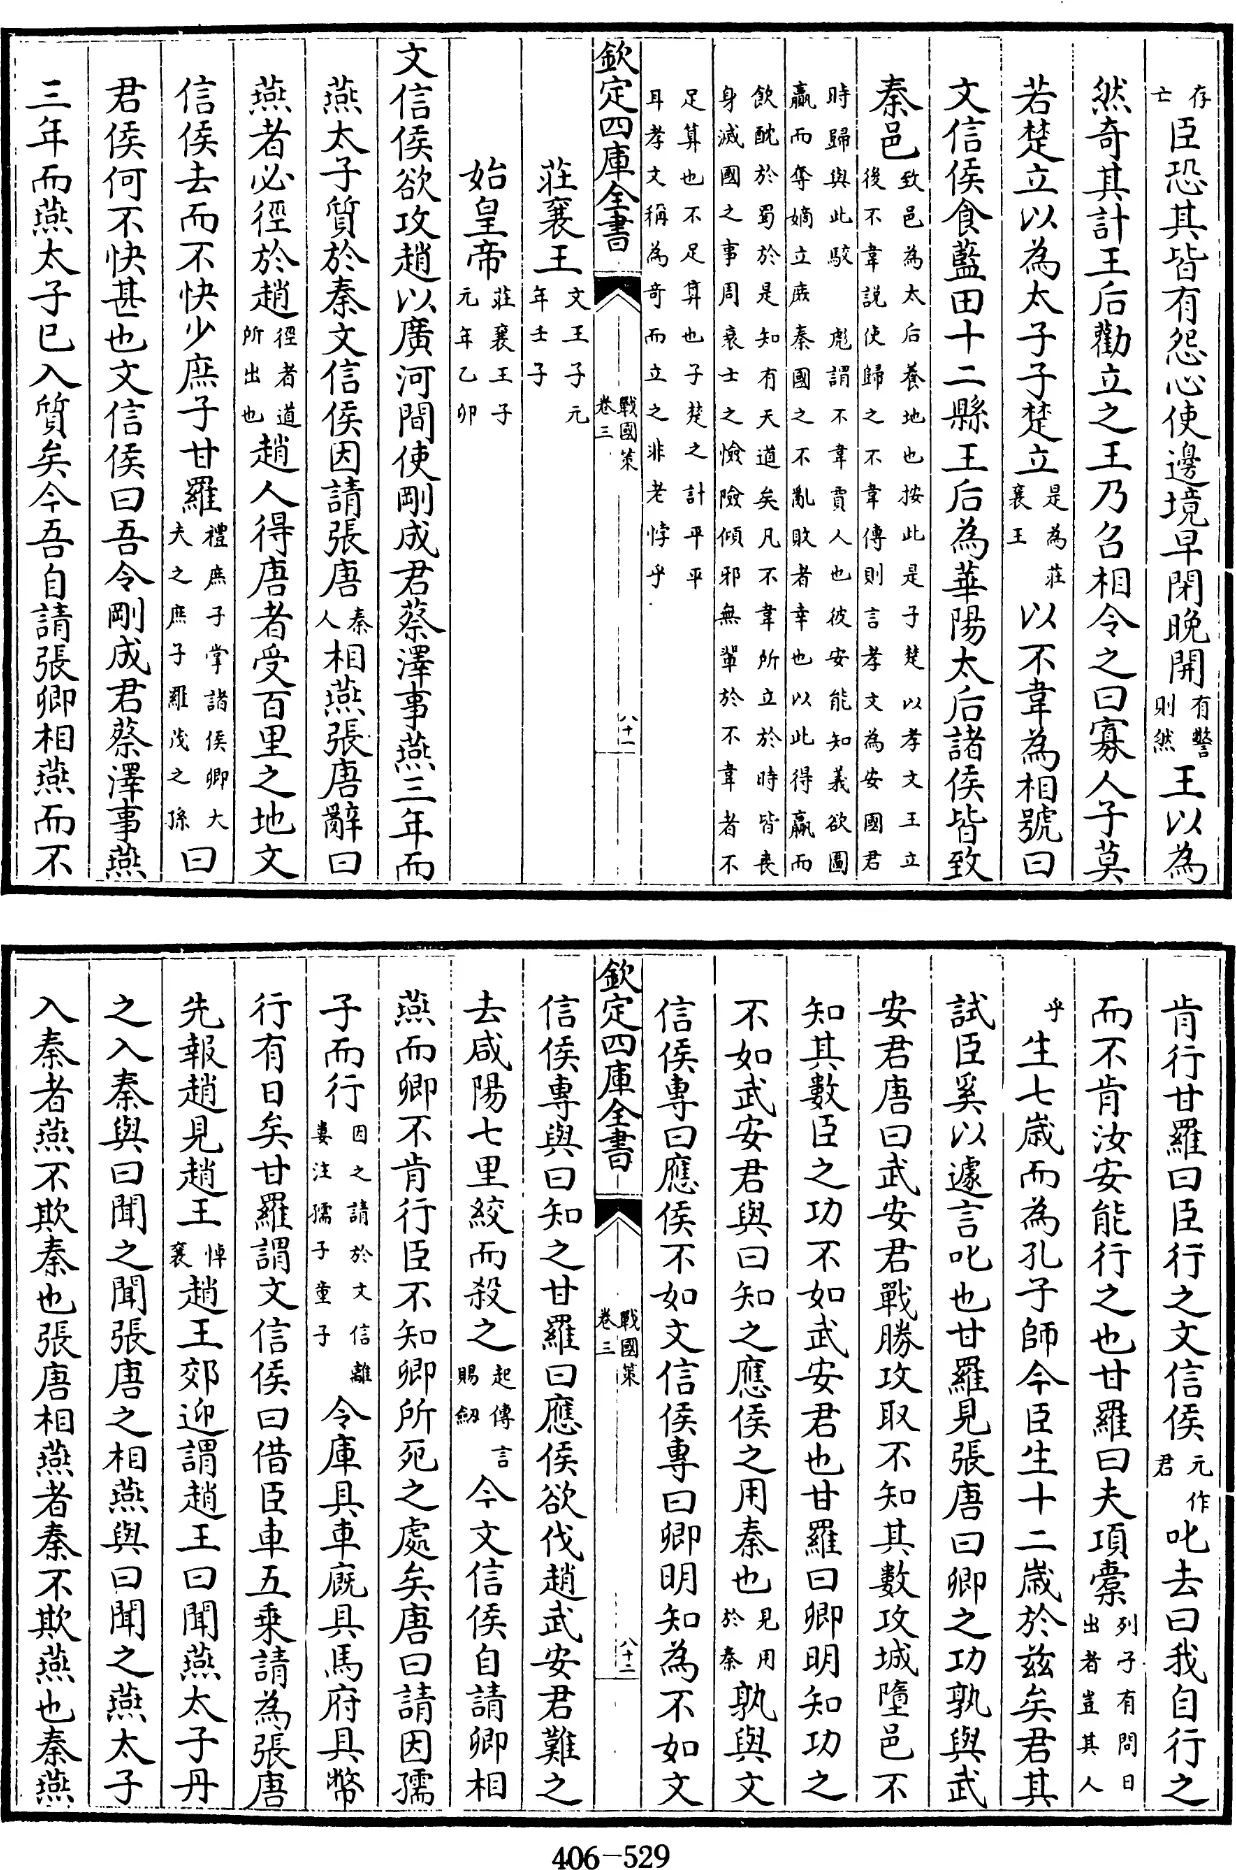 存亡臣恐其皆有怨心使邊境早閉晚開有警則然王以為
然奇其計王后勸立之王乃召相令之曰寡人子莫
若楚立以為太子子楚立是為莊襄王以不韋為相號曰
文信侯食藍田十二縣王后為華陽太后諸侯皆致
秦邑致邑為太后養地也按此是子楚以孝文王立後不韋說使歸之不韋傳則言孝文為安國君
時歸與此駮彪謂不韋賈人也彼安能知義欲圖贏而奪嫡立庶秦國之不亂敗者幸也以此得贏而
飲酖於蜀於是知有天道矣凡不韋所立於時皆喪身滅國之事周衰士之憸險傾邪無輩於不韋者不
足算也不足算也子楚之計平平耳孝文稱為奇而立之非老悖乎
欽定四庫全書
戰國策
卷三
八十一
莊襄王文王子元年壬子
始皇帝莊襄王子元年乙卯
文信侯欲攻趙以廣河間使剛成君蔡澤事燕三年而
燕太子質於秦文信侯因請張唐秦人相燕張唐辭曰
燕者必徑於趙徑者道所出也趙人得唐者受百里之地文
信侯去而不快少庶子甘羅禮庶子掌諸侯卿大夫之庶子羅茂之孫曰
君侯何不快甚也文信侯曰吾令剛成君蔡澤事燕
三年而燕太子已入質矣今吾自請張卿相燕而不
肯行甘羅曰臣行之文信侯元作君叱去曰我自行之
而不肯汝安能行之也甘羅曰夫項橐列子有問日出者豈其人
乎生七歲而為孔子師今臣生十二歲於茲矣君其
試臣奚以遽言叱也甘羅見張唐曰卿之功孰與武
安君唐曰武安君戰勝攻取不知其數攻城墮邑不
知其數臣之功不如武安君也甘羅曰卿明知功之
不如武安君與曰知之應侯之用秦也見用於秦孰與文
信侯專曰應侯不如文信侯專曰卿明知為不如文
欽定四庫全書
戰國策
卷三
八十二
信侯專與曰知之甘羅曰應侯欲伐趙武安君難之
去咸陽七里絞而殺之起傳言賜劔今文信侯自請卿相
燕而卿不肯行臣不知卿所死之處矣唐曰請因孺
子而行因之請於文信離婁注孺子童子令庫具車廐具馬府具幣
行有日矣甘羅謂文信侯曰借臣車五乘請為張唐
先報趙見趙王悼襄趙王郊迎謂趙王曰聞燕太子丹
之入秦與曰聞之聞張唐之相燕與曰聞之燕太子
入秦者燕不欺秦也張唐相燕者秦不欺燕也秦燕
406-529